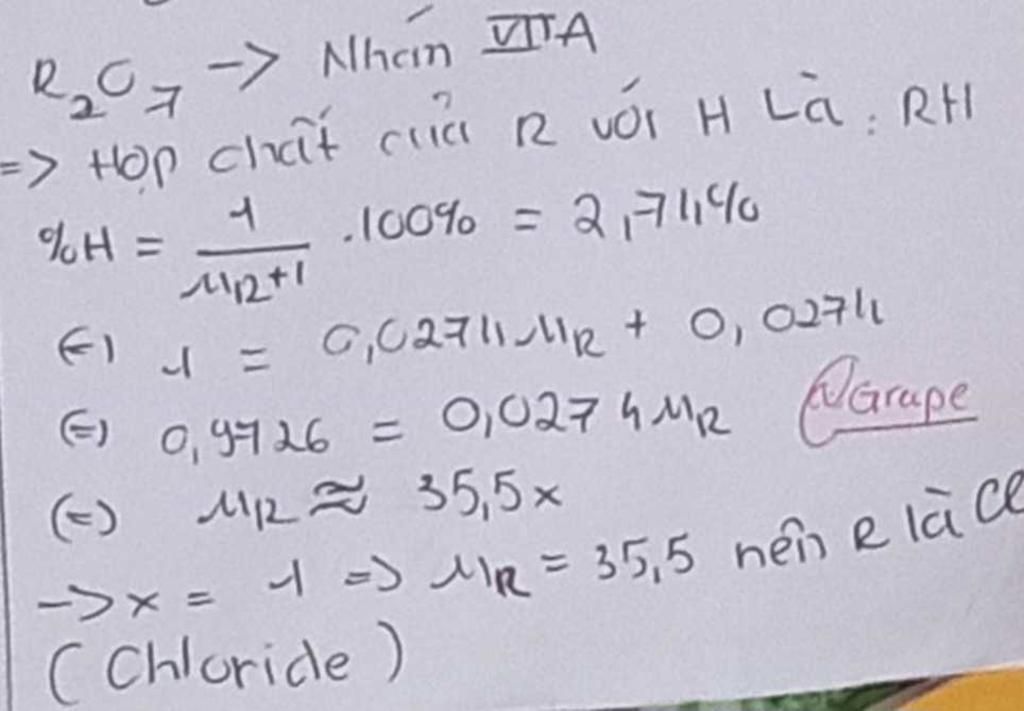 R₂O₇ -> Nhóm VIIA
=> Hợp chất của R với H Là : RH
%H = 1/(M_R+1) .100% = 2,74%
(=) 1 = 0,0274M_R + 0,0274
(=) 0,9726 = 0,0274M_R
Grape
(=) M_R ≈ 35,5x
-> x = 1 => M_R = 35,5 nên R là Cl
(Chloride)